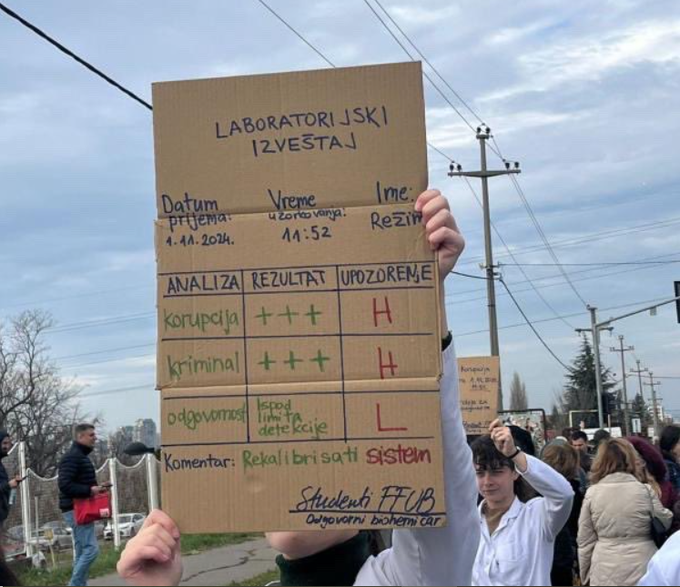 LABORATORIJSKI
IZVEŠTAJ
Datum prijema: 1.11.2024.
Vreme uzorkovanja: 11:52
Ime: Režim
ANALIZA REZULTAT UPOZORENJE
korupcija +++ H
kriminal +++ H
odgovornost Ispod limita detekcije L
Komentar: Rekalibrisati sistem
Studenti FFUB
Odgovorni biohemičar
Korupcija